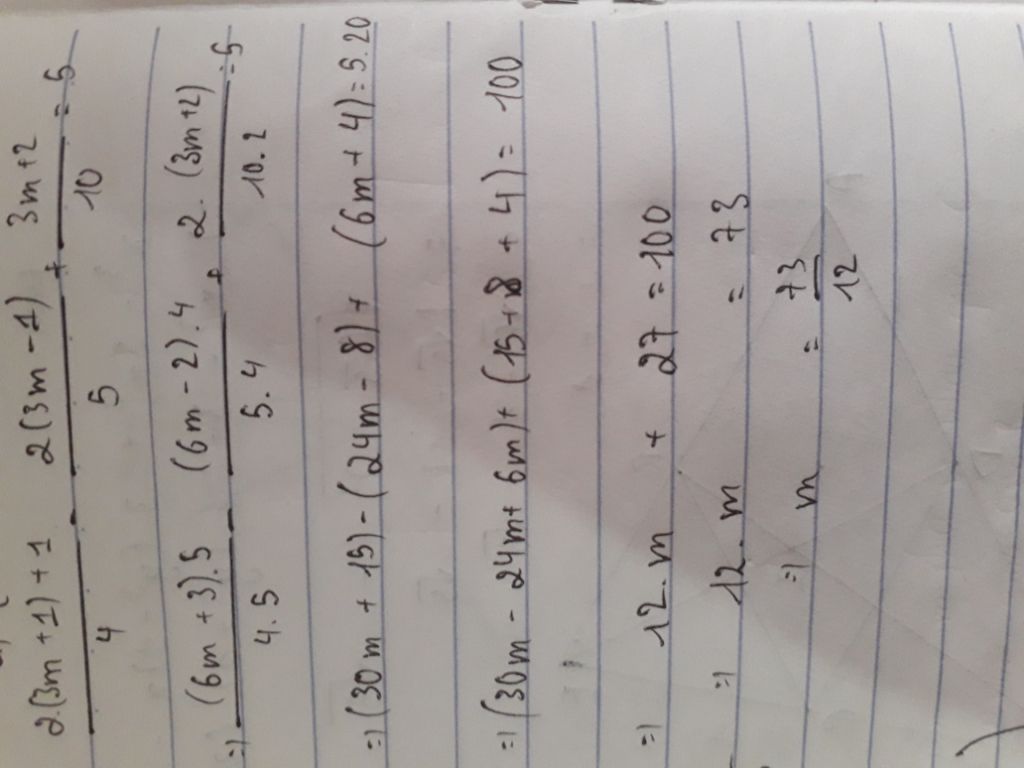 2.(3m+1)+1/4 - 2(3m-1)/5 + 3m+2/10 = 5
=> (6m+3).5/4.5 - (6m-2).4/5.4 + 2.(3m+2)/10.2 = 5
=> (30m + 15) - (24m - 8) + (6m + 4) = 5.20
=> (30m - 24m + 6m) + (15 + 8 + 4) = 100
=> 12.m + 27 = 100
=> 12.m = 73
=> m = 73/12